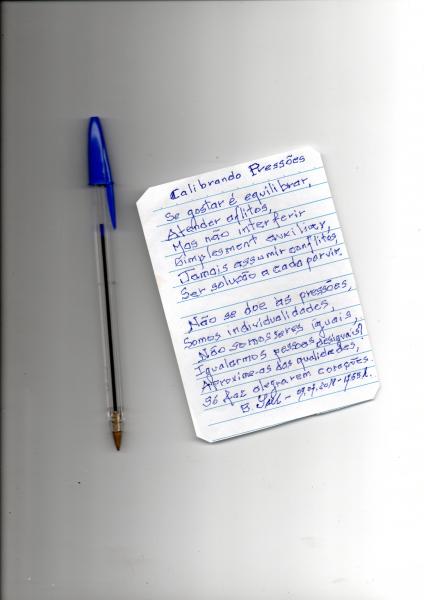 Calibrando Pressões
Se gostar é equilibrar,
Atender aflitos,
Mas não interferir
Simplesment auxiliar,
Jamais assumir conflitos,
Ser solução a cada porvir.
Não se doe às pressões,
Somos individualidades,
Não somos seres iguais,
Igualarmos pessoas desiguais?
Aproxime-as das qualidades,
Só faz alegrarem corações.
B.